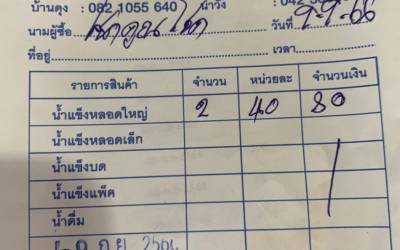 บ้านดุง : 082 1055 640
นามผู้ซื้อ วันที่ 9-9-66
ที่อยู่ เวลา
รายการสินค้า จำนวน หน่วยละ จำนวนเงิน
น้ำแข็งหลอดใหญ่ 2 40 80
น้ำแข็งหลอดเล็ก
น้ำแข็งบด
น้ำแข็งแพ็ค
น้ำดื่ม